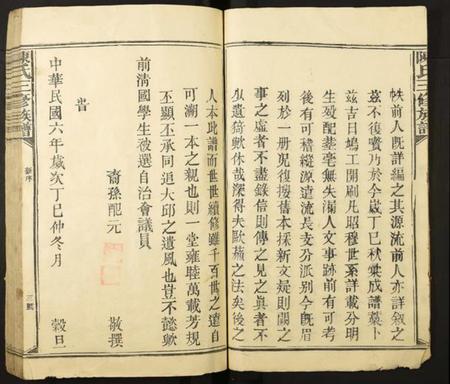 陳氏三修族譜
帙前人既詳編之其源流前人亦詳敘之
茲不復贅乃於今歲丁巳秋
茲吉日鳩工開刷凡昭穆世系詳載分明
生歿配塟毫無失漏人文事跡前有可考
後有可稽縱源遠流長支分派別今旣眉
列於一册況復搜舊本採新文疑則闕之
事之虛者不盡錄信則傳之見之眞者不
遺猗歟休哉深得夫歐蘇之法矣後之
人本此譜而世世續修雖千百世之遠自
可溯一本之親也則一堂雍睦萬載芳規
丕顯丕承同追大邱之遺風也豈不懿歟
前清國學生被選自治會議員
裔孫配元 敬撰
旹
中華民國六年歲次丁巳仲冬月 穀旦
陳氏三修族譜
新序